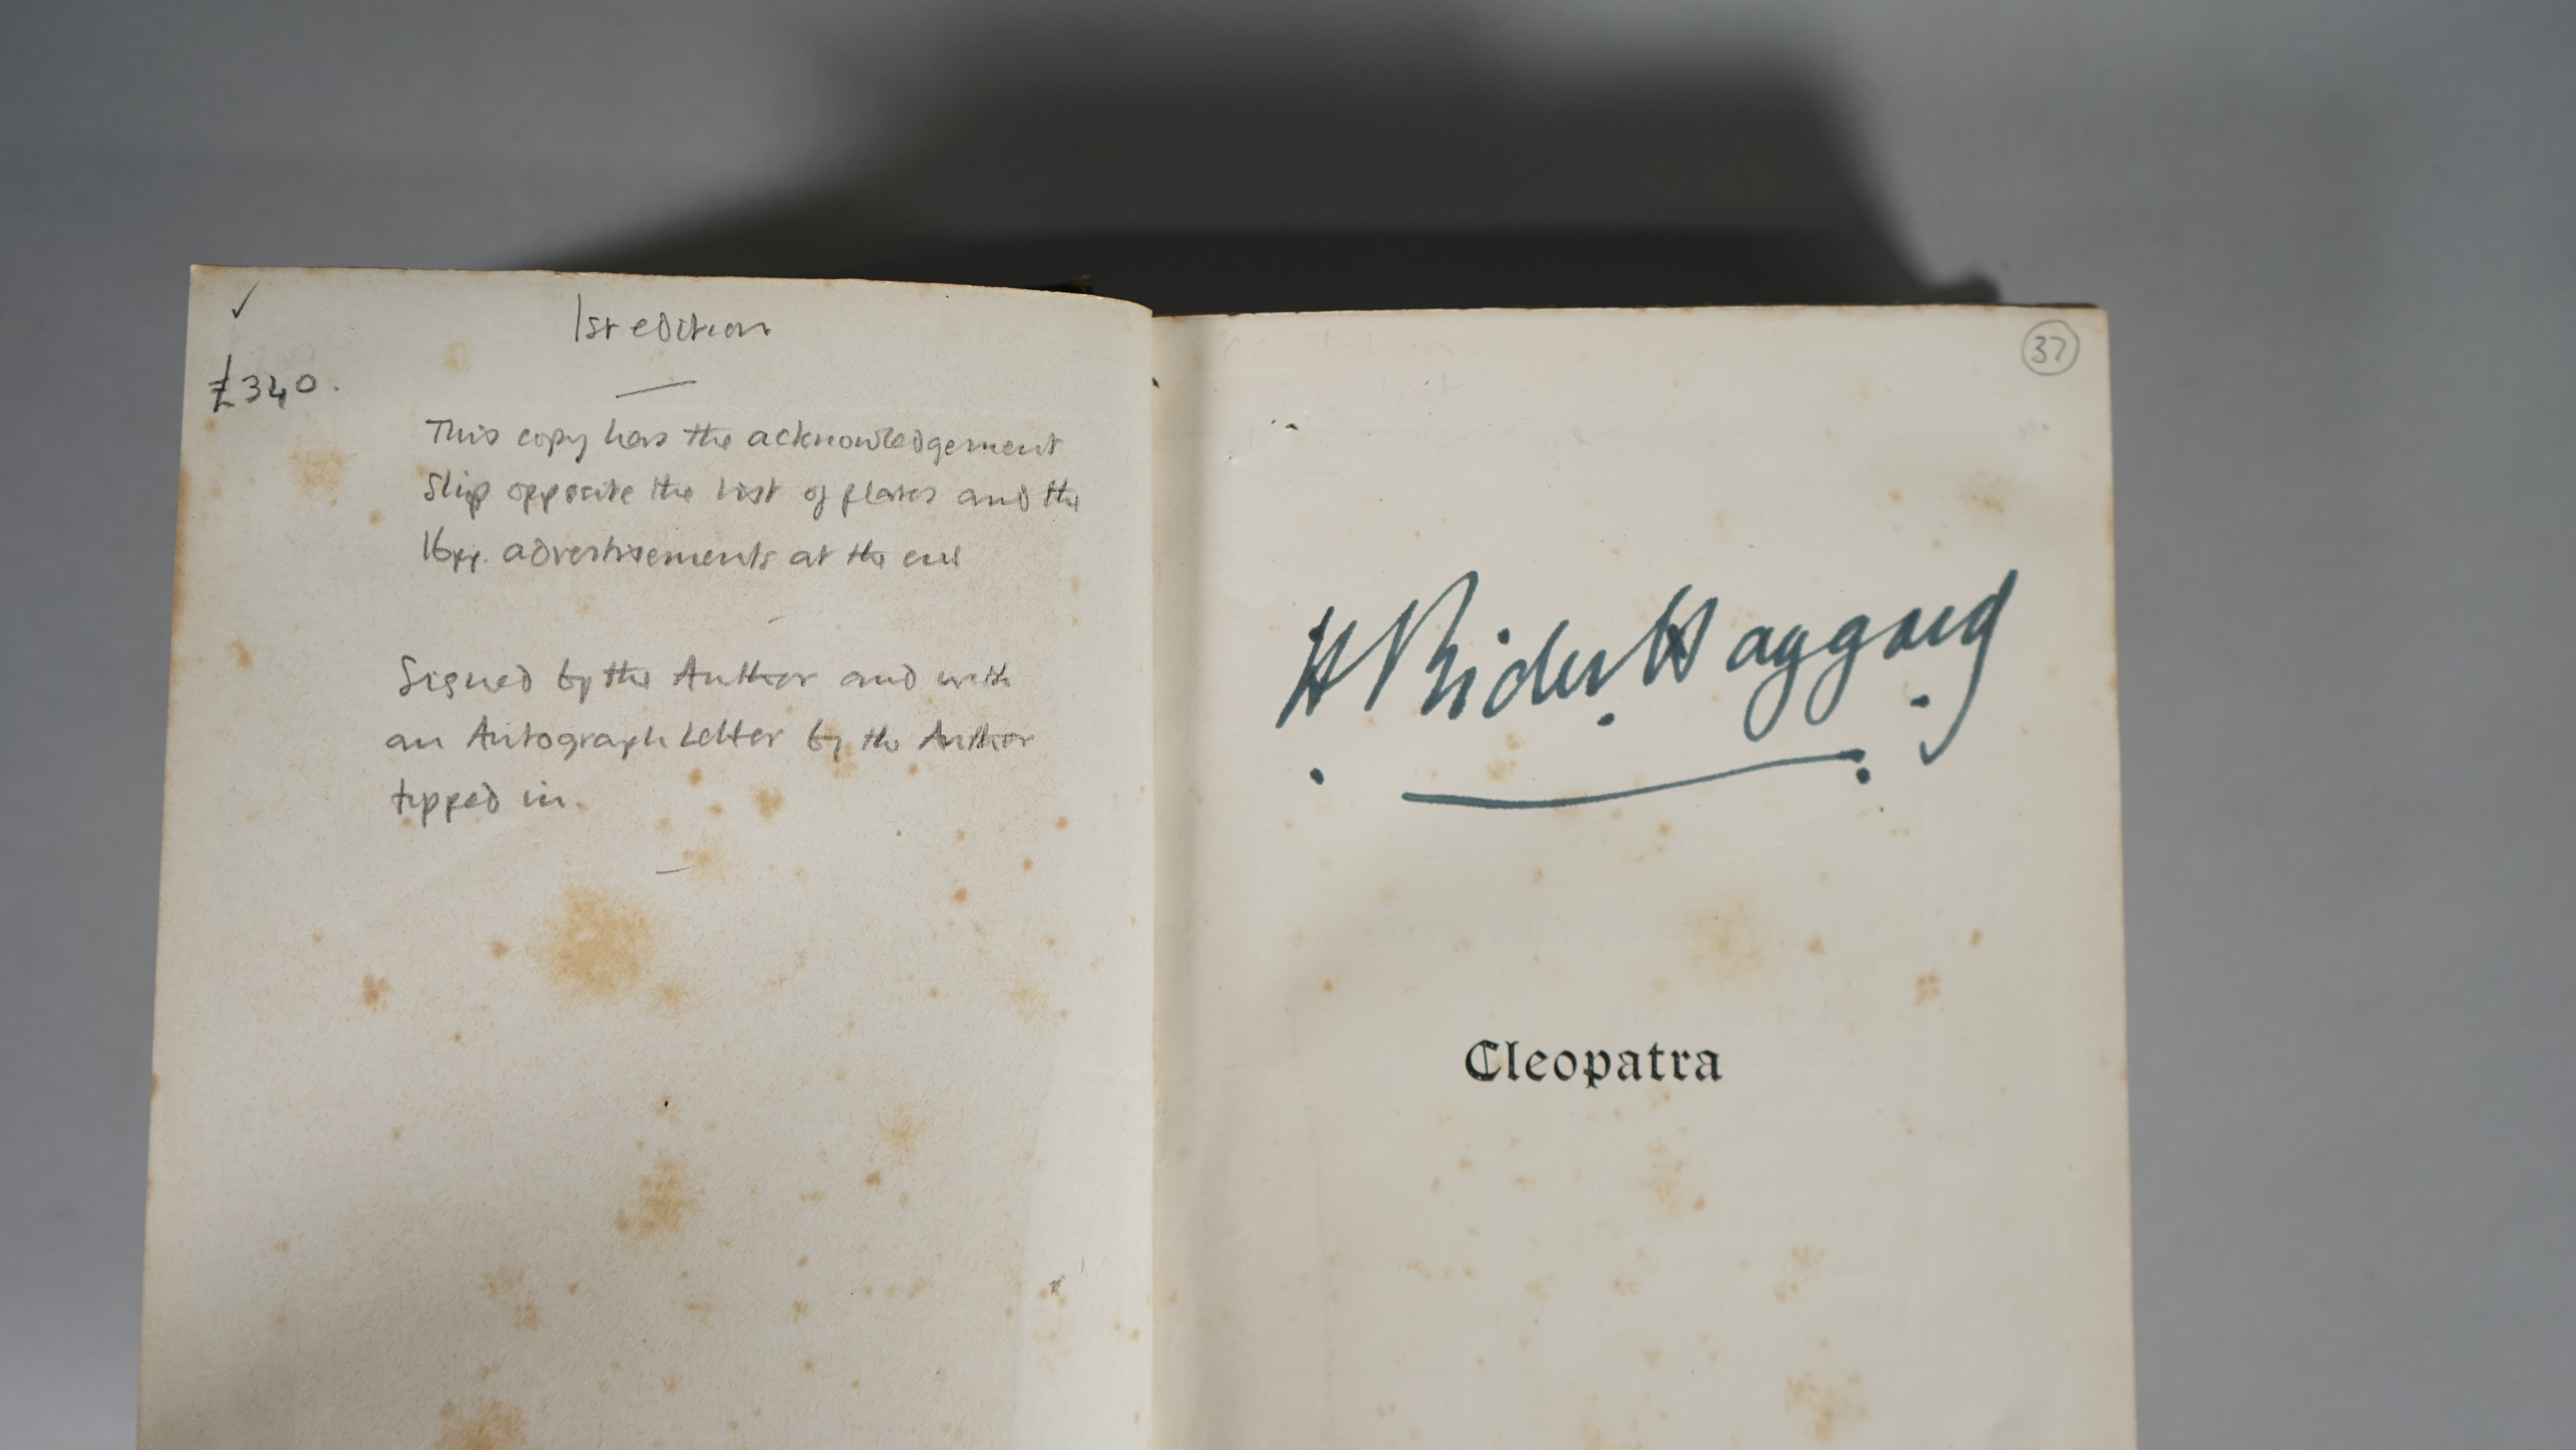 ✓
1st edition
£340.
This copy has the acknowledgement
slip opposite the list of plates and the
16pp. advertisements at the end
Signed by the Author and with
an Autograph Letter by the Author
tipped in.
37
H Rider Haggard
Cleopatra